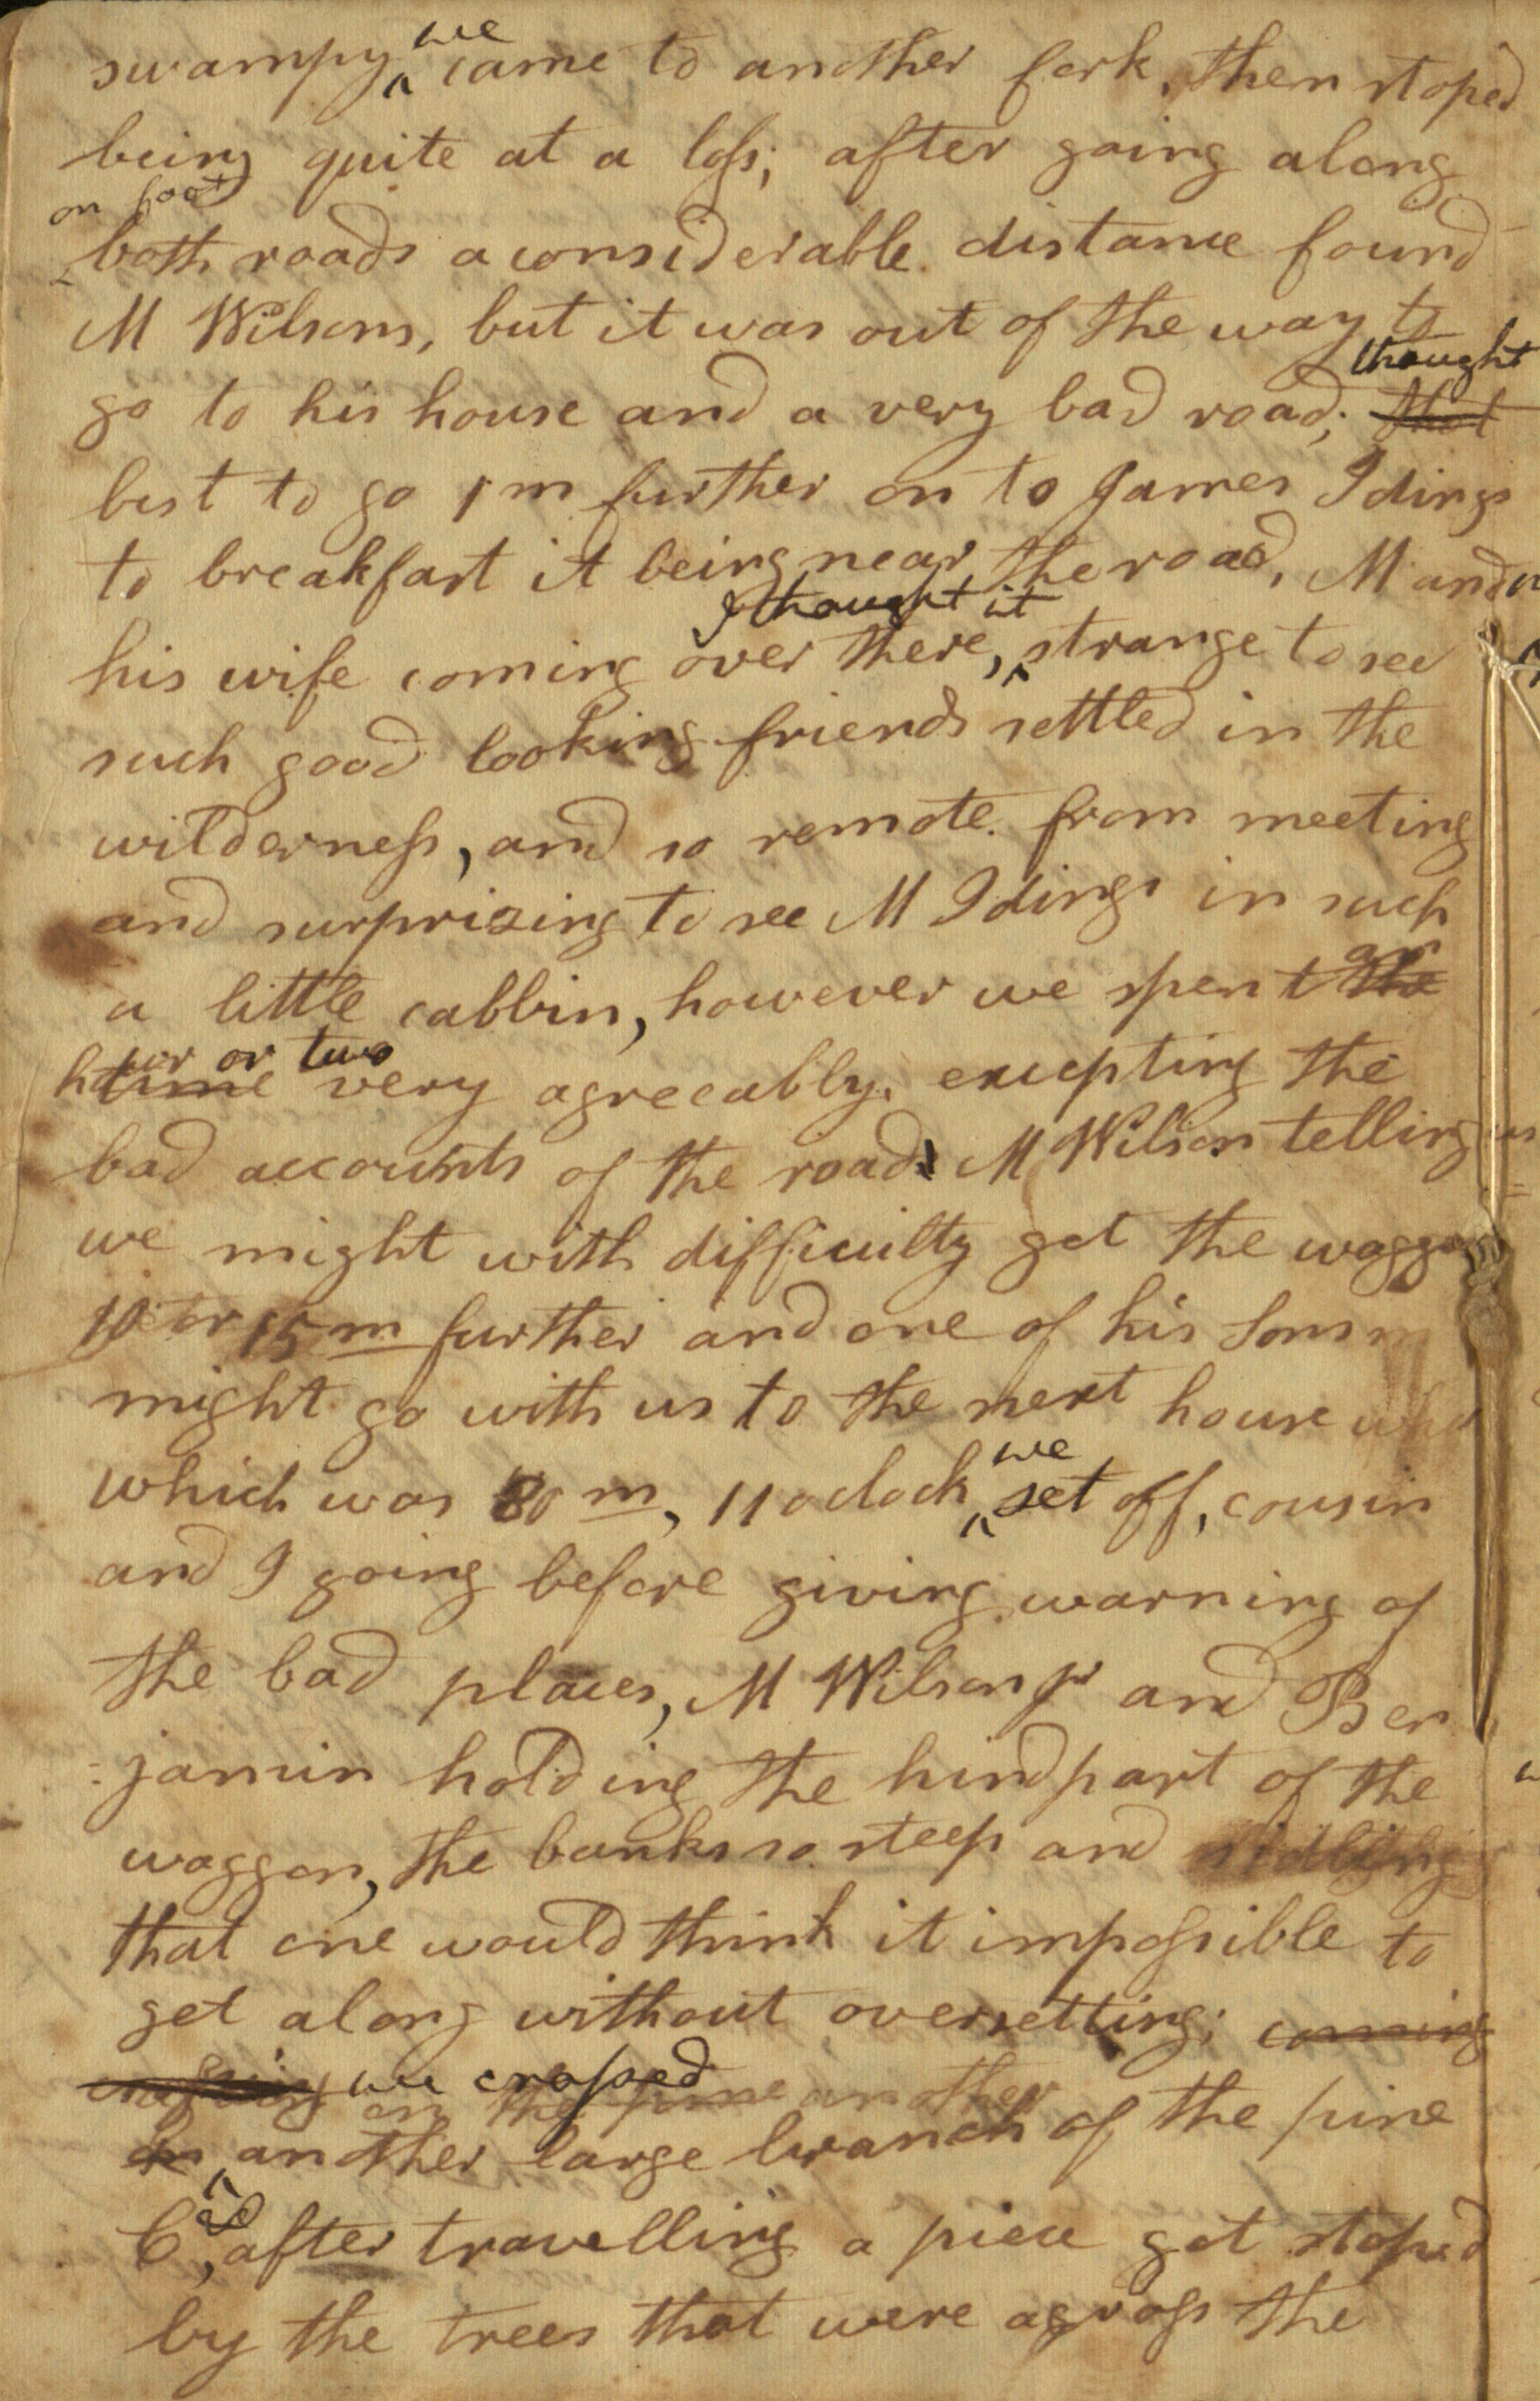 swampy ^we came to another fork, then stoped
being quite at a loſs; after going along
on foot
both roads a considerable distance found
M Wilsons, but it was out of the way to
thought
go to his house and a very bad road; that
best to go 1 m further on to James Idings
to breakfast it being near the road, M and
I thought it
his wife coming over there, ^ strange to see
such good looking friends settled in the
wilderneſs, and so remote from meeting
and surprizing to see M Idings in such
an
a little cabbin, however we spent the
hour or two
time very agreeably, excepting the
bad accounts of the road M Wilson telling
we might with difficulty get the waggon
10 or 15 m further and one of his Sons
might go with us to the next house
we
which was 80 m, 11 oclock ^ set off, cousin
and I going before giving warning of
the bad places, M Wilson jr and Ben
jamin holding the hind part of the
waggon, the banks so steep and sidling
that one would think it impoſsible to
get along without oversetting; coming
croſsing we croſsed
on the pine another
on ^ another large branch of the pine
Cd, after travelling a piece got stoped
by the trees that were acroſs the